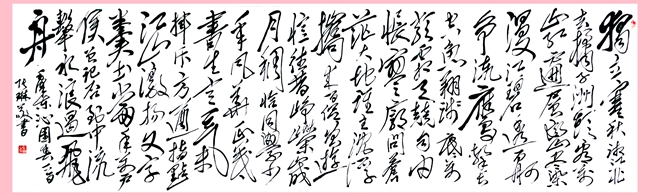 獨立寒秋湘江北
去橘子洲頭看萬
山紅遍層林盡染
漫江碧透百舸
爭流鷹擊長
空魚翔淺底萬
類霜天競自由
悵寥廓問蒼
茫大地誰主沉浮
攜來百侶曾遊
憶往昔崢嶸歲
月稠恰同學少
年風華正茂
書生意氣
揮斥方遒指點
江山激揚文字
糞土當年萬戶
侯曾記否到中流
擊水浪遏飛
舟
沁園春一首
書